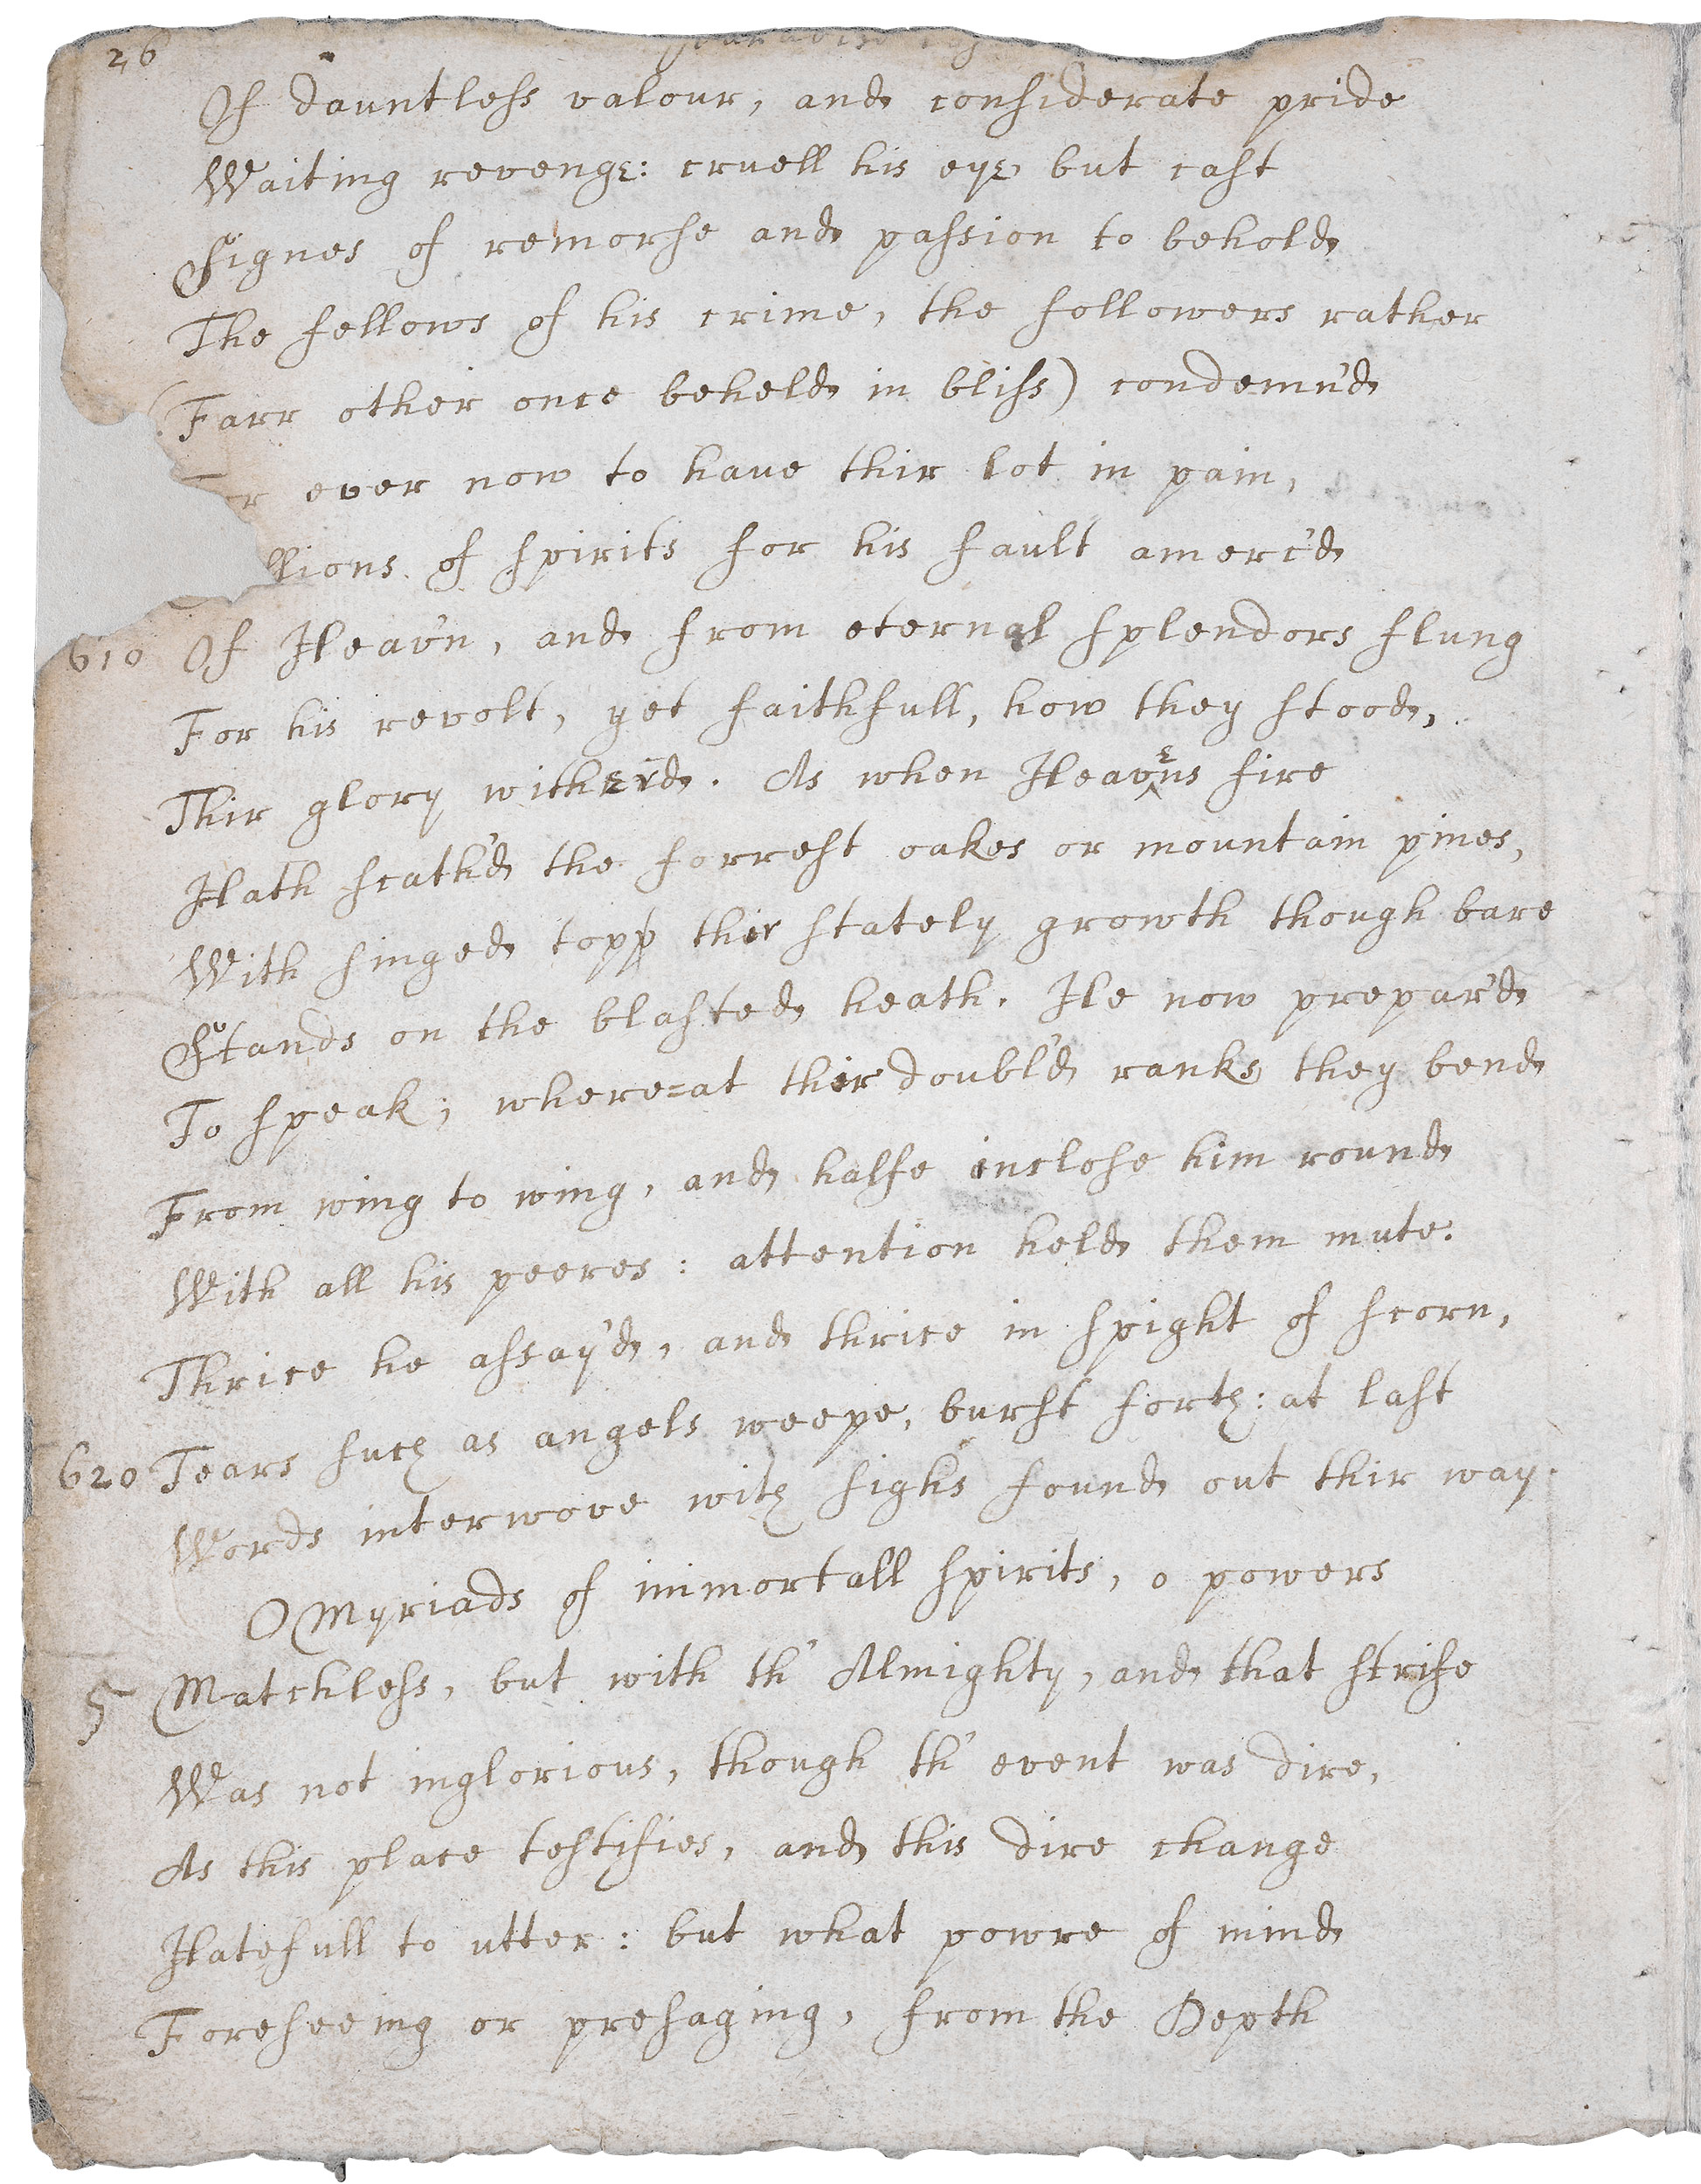 26
Of dauntless valour, and considerate pride
Waiting revenge: cruell his eye but cast
Signes of remorse and passion to behold
The fellows of his crime, the followers rather
(Farr other once beheld in bliss) condemn'd
r ever now to haue thir lot in pain,
llions of spirits for his fault amerc'd
610 Of Heav'n, and from eternal splendors flung
For his revolt, yet faithfull, how they stood,
Thir glory wither'd. As when Heavens fire
Hath scath'd the forrest oakes or mountain pines,
With singed topp thir stately growth though bare
Stands on the blasted heath. He now prepar'd
To speak; where=at thir doubl'd ranks they bend
From wing to wing, and halfe inclose him round
With all his peeres: attention held them mute.
Thrice he assay'd, and thrice in spight of scorn,
Tears such as angels weepe, burst forth: at last
620 Words interwove with sighs found out thir way.
O Myriads of immortall spirits, o powers
5 Matchless, but with th' Almighty, and that strife
Was not inglorious, though th' event was dire,
As this place testifies, and this dire change
Hatefull to utter: but what powre of mind
Foreseeing or presaging, from the Depth